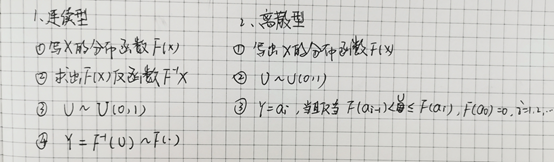 1、连续型
①写X的分布函数F(x)
②求出F(x)反函数F⁻¹X
③ U~U(0,1)
④ Y=F⁻¹(U)~F(·)
2、离散型
① 写出X的分布函数F(x)
② U~U(0,1)
③ Y=aᵢ,当且仅当 F(aᵢ₋₁)<U≤F(aᵢ), F(a₀)=0, i=1,2,…